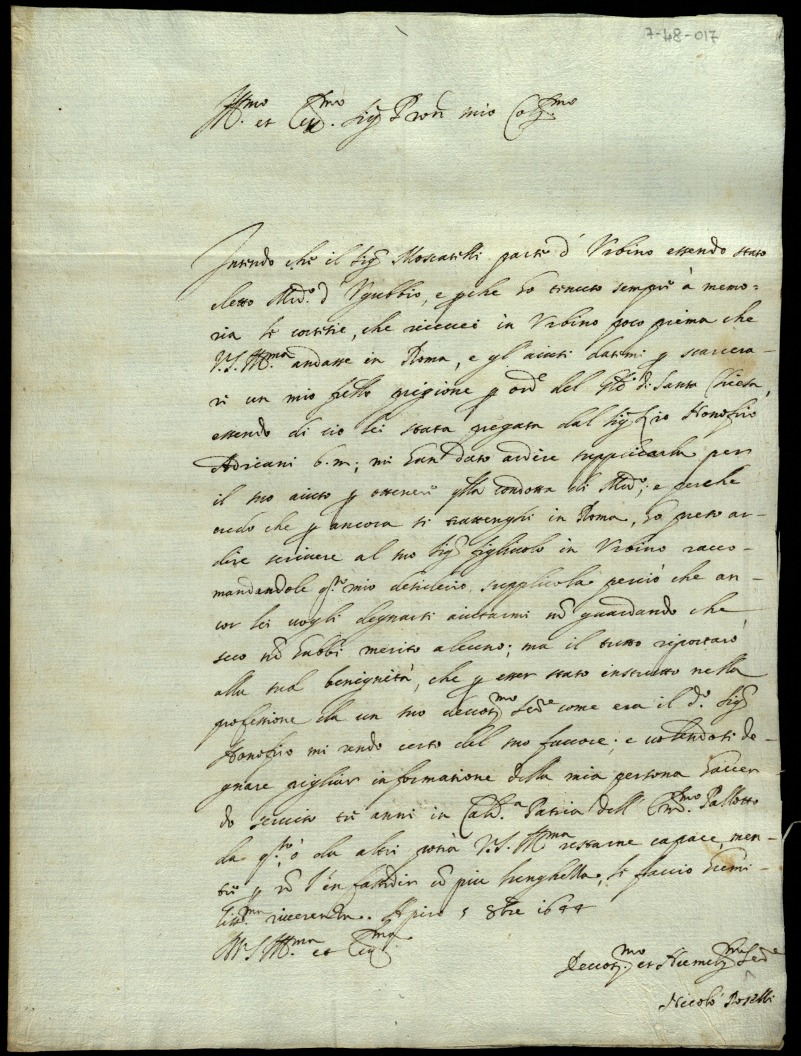 7-48-017
Ill.mo et Ecc.mo Sig.r Pron mio Col.mo
Intendo che il Sig.r Moscatelli parte d' Urbino essendo stato
eletto Med.o d' Ugubbio, e p che ho tenuto sempre à memo-
ria le cortesie, che ricevei in Urbino poco prima che
V.S. Ill.ma andasse in Roma, e gl' aiuti datimi p scarcera-
re un mio fratello prigione p ord.e del di Santa Chiesa,
essendo di ciò lei stata pregata dal Sig.r Honofrio
Adriani b.m.; mi han dato ardire supplicarla per
il suo aiuto p ottenere qlla condotta di Med.o; e perche
credo che p ancora si trattenghi in Roma, ho preso ar-
dire scrivere al suo Sig.r figliuolo in Urbino racco-
mandandole q.sto mio desiderio, supplicola perciò che an-
cor lei vogli degnarsi aiutarmi nõ guardando che
seco nõ habbi merito alcuno; ma il tutto riportarò
alla sua benignità, che p esser stato instrutto nella
professione da un suo devot.mo Ser.e come era il d.o Sig.r
Honofrio mi rendo certo del suo favore; e volendosi de-
gnare pigliar informatione della mia persona haven-
do servito tre anni in Cald.a Patria dell' Em.mo Pallotto
da q.sto, ò da altri potrà V.S. Ill.ma restarne capace, men-
tre p nõ l' infastidir cõ più lunghezza, le faccio humi-
liss.ma riverenza. Apiro 5 8bre 1644
Di V.S. Ill.ma et Ecc.ma
Devot.mo et Humiliss.mo Ser.e
Nicolò Roselli